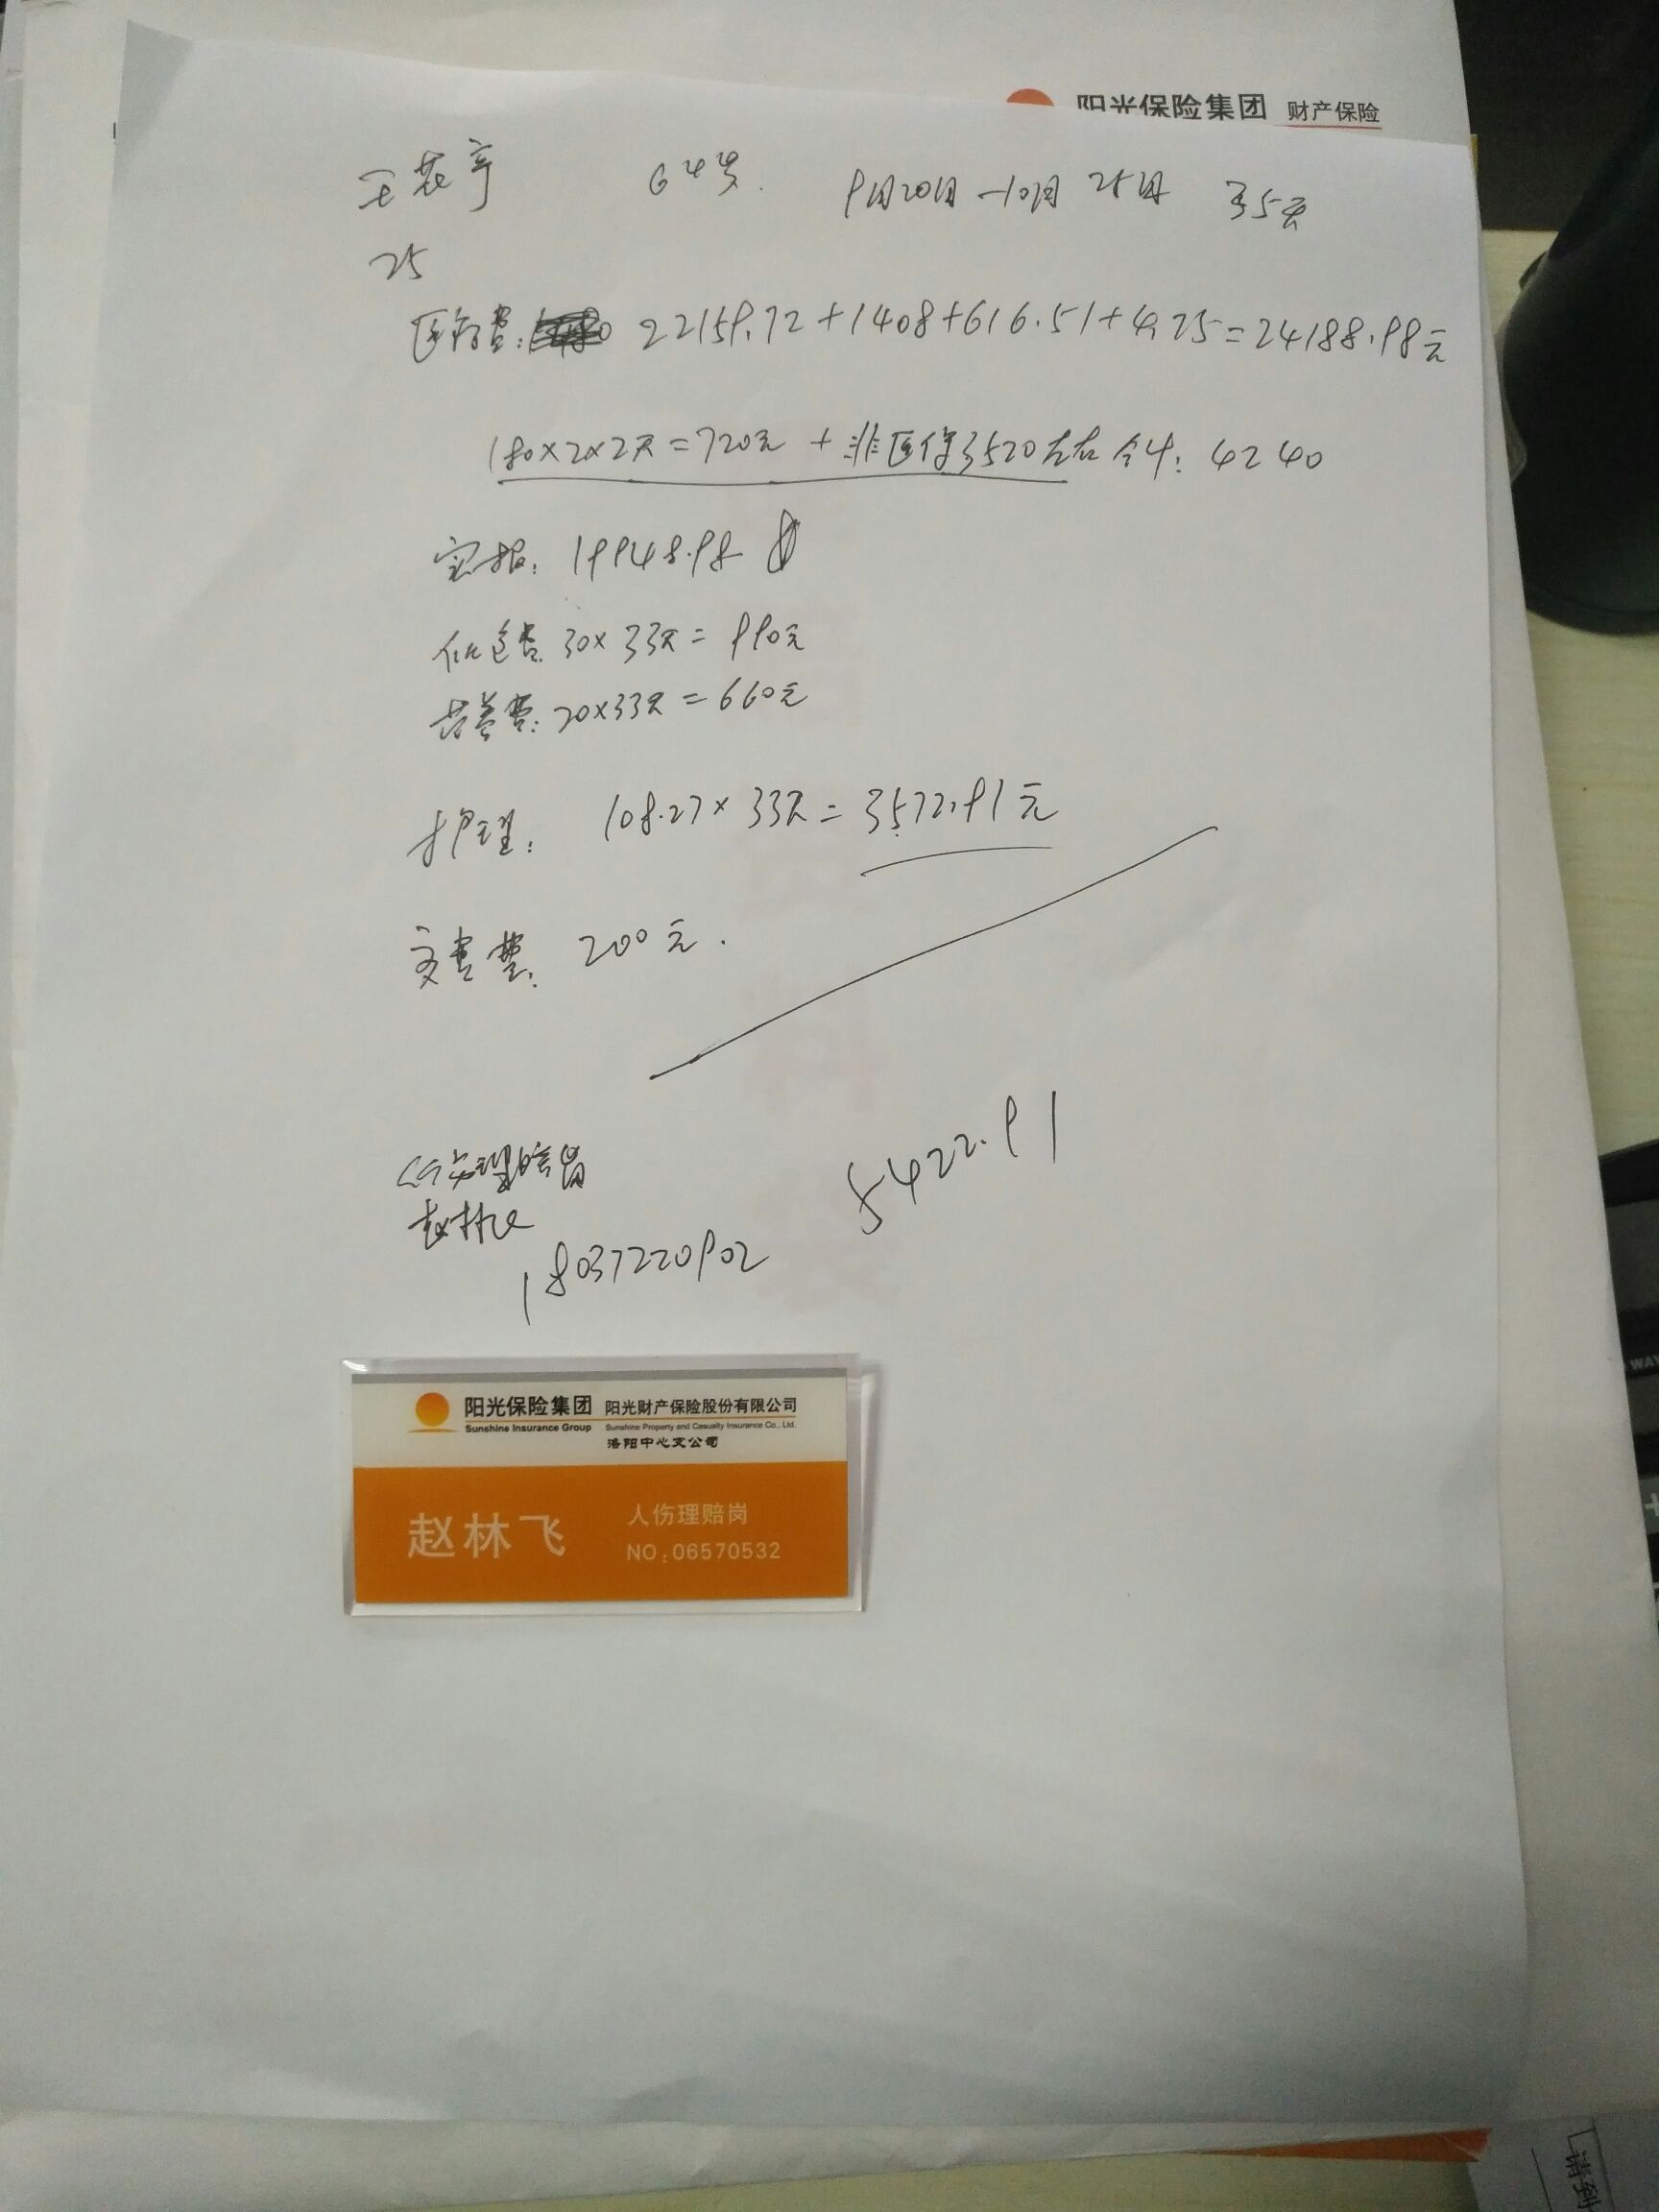 阳光保险集团 财产保险
王花亭 64岁. 9月20日-10月25日 35天
25
医疗费: 22159.72+1408+616.51+4.75=24188.98元
180×2×2天=720元 + 非医保3520左右 合计: 4240
实报: 19948.98
伙食费: 30×33天=990元
营养费: 20×33天=660元
护理: 108.27×33天=3572.91元
交通费: 200元.
5422.91
人伤理赔岗
赵林飞
18037220902
阳光保险集团 阳光财产保险股份有限公司
Sunshine Insurance Group Sunshine Property and Casualty Insurance Co., Ltd.
洛阳中心支公司
赵林飞 人伤理赔岗
NO:06570532
WAY
请到